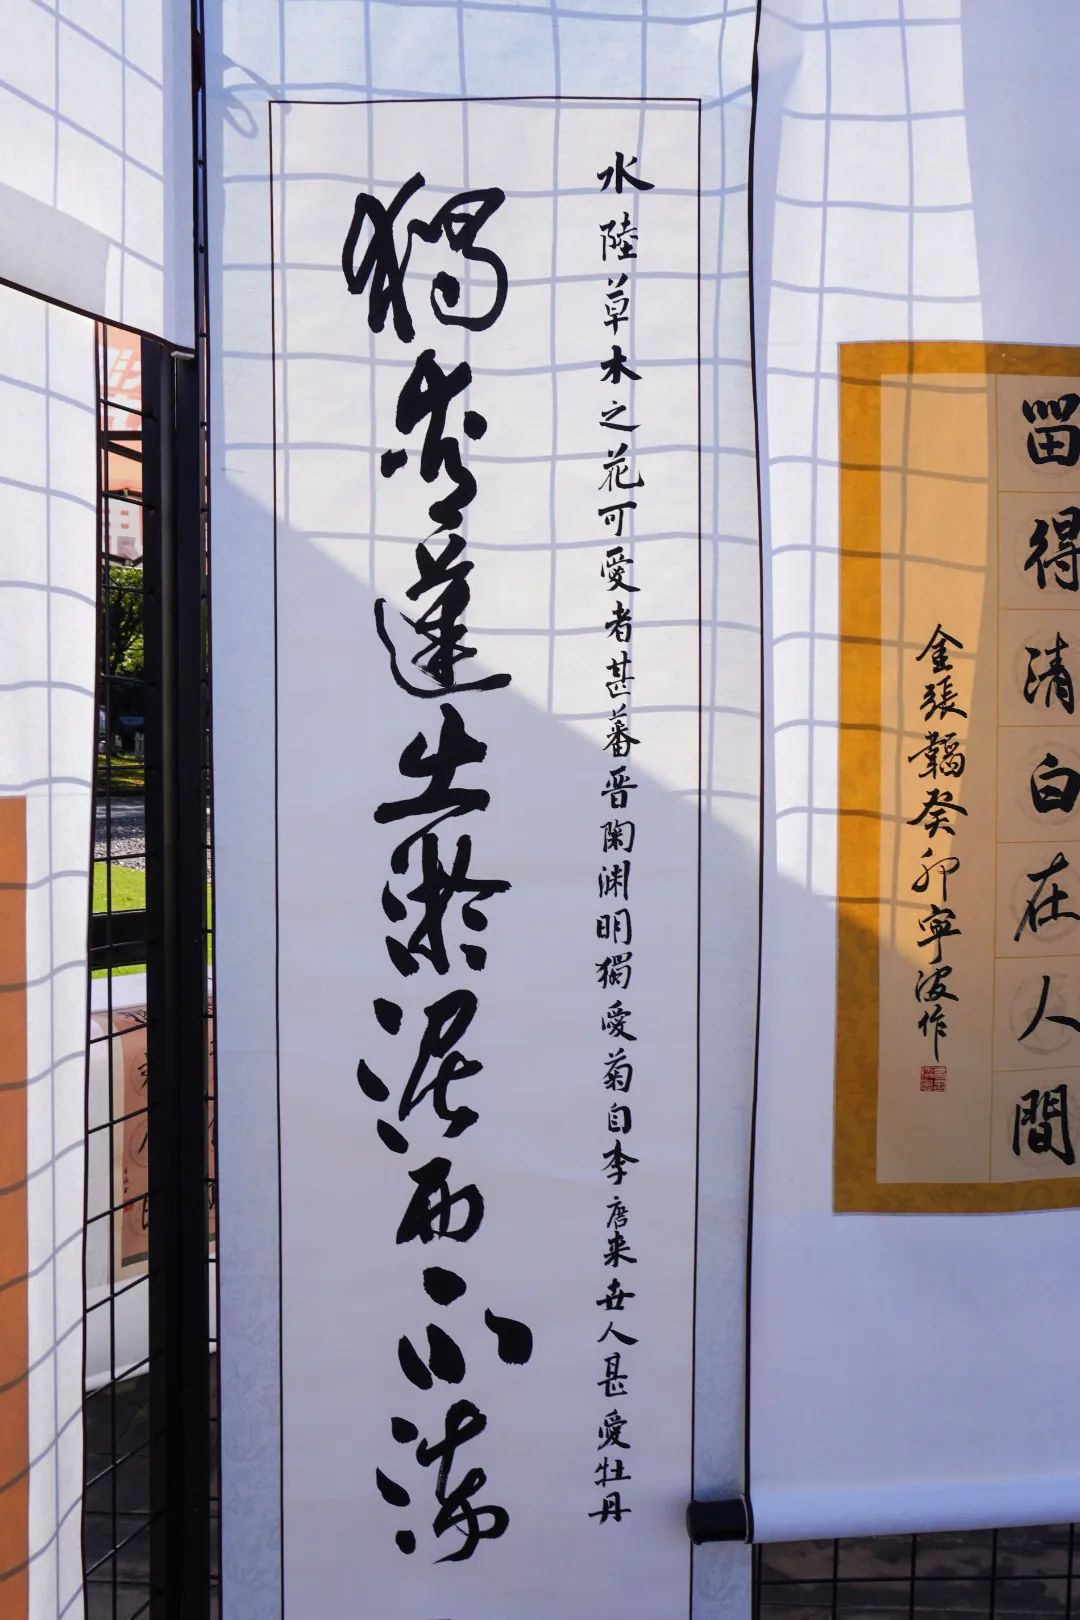 留得清白在人間
金張韜癸卯寧波作
水陸草木之花可愛者甚蕃晉陶渊明獨愛菊自李唐来世人甚愛牡丹
獨愛蓮出淤泥而不染